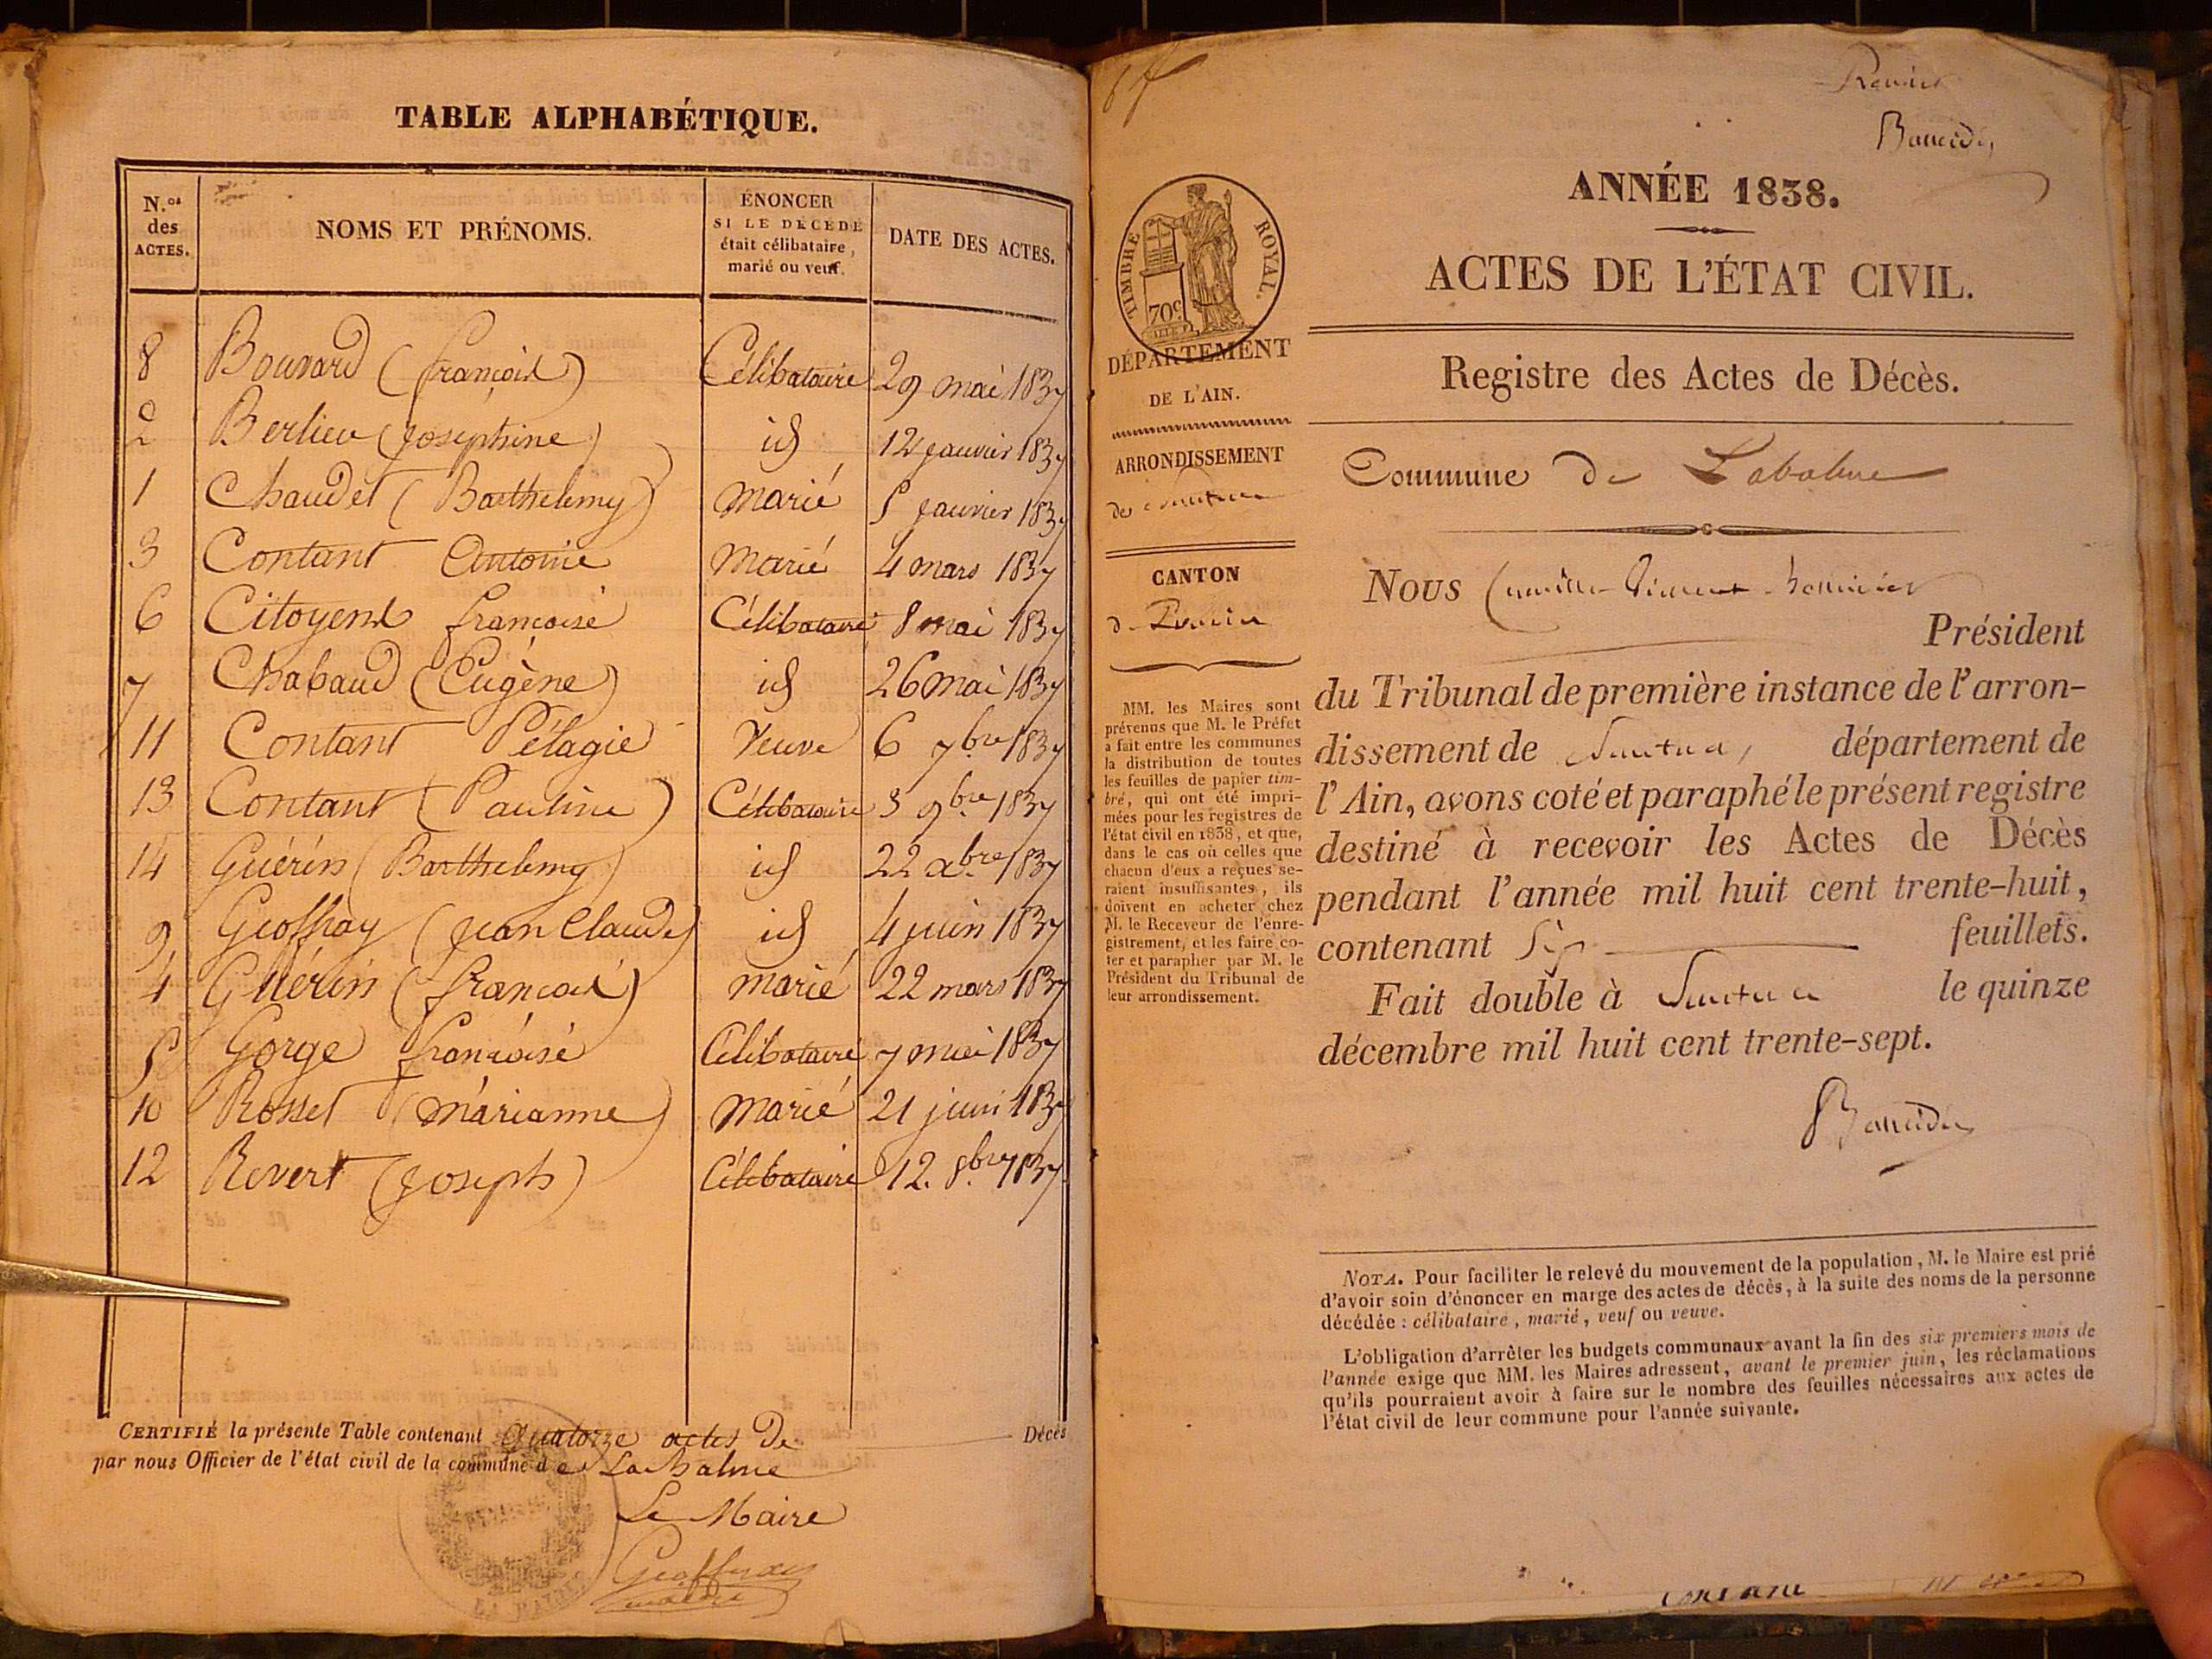 TABLE ALPHABÉTIQUE.
N.os des ACTES.
NOMS ET PRÉNOMS.
ÉNONCER
SI LE DÉCÉDÉ
était célibataire,
marié ou veuf.
DATE DES ACTES.
8 Bouvard (françois) Célibataire 29 mai 1837
2 Berlieu (Josephine) id 12 Janvier 1837
1 Chaudet (Barthelemy) marié 5 Janvier 1837
3 Contant Antoine Marié 4 mars 1837
6 Citoyent françoise Célibataire 8 mai 1837
7 Chabaud (Eugène) id 26 mai 1837
11 Contant Pélagie Veuve 6 7bre 1837
13 Contant (Pauline) Célibataire 3 9bre 1837
14 Guérin (Barthelemy) id 22 xbre 1837
9 Geoffray (Jean Claude) id 4 juin 1837
4 Guérin (françois) marié 22 mars 1837
5 Gorge françoise Célibataire 7 mai 1837
10 Rosset (marianne) Marié 21 juin 1837
12 Revert (Joseph) Célibataire 12. 8bre 1837
CERTIFIÉ la présente Table contenant Quatorze actes De Décès
par nous Officier de l'état civil de la commune de La Balme
Le Maire
TIMBRE ROYAL.
70c
DÉPARTEMENT
DE L'AIN.
ARRONDISSEMENT
de
CANTON
d
MM. les Maires sont
prévenus que M. le Préfet
a fait entre les communes
la distribution de toutes
les feuilles de papier tim-
bré, qui ont été impri-
mées pour les registres de
l'état civil en 1838, et que,
dans le cas où celles que
chacun d'eux a reçues se-
raient insuffisantes, ils
doivent en acheter chez
M. le Receveur de l'enre-
gistrement, et les faire co-
ter et parapher par M. le
Président du Tribunal de
leur arrondissement.
ANNÉE 1838.
ACTES DE L'ÉTAT CIVIL.
Registre des Actes de Décès.
Commune de Labalme
NOUS
Président
du Tribunal de première instance de l'arron-
dissement de Nantua, département de
l'Ain, avons coté et paraphé le présent registre
destiné à recevoir les Actes de Décès
pendant l'année mil huit cent trente-huit,
contenant feuillets.
Fait double à Nantua le quinze
décembre mil huit cent trente-sept.
NOTA. Pour faciliter le relevé du mouvement de la population, M. le Maire est prié
d'avoir soin d'énoncer en marge des actes de décès, à la suite des noms de la personne
décédée : célibataire, marié, veuf ou veuve.
L'obligation d'arrêter les budgets communaux avant la fin des six premiers mois de
l'année exige que MM. les Maires adressent, avant le premier juin, les réclamations
qu'ils pourraient avoir à faire sur le nombre des feuilles nécessaires aux actes de
l'état civil de leur commune pour l'année suivante.